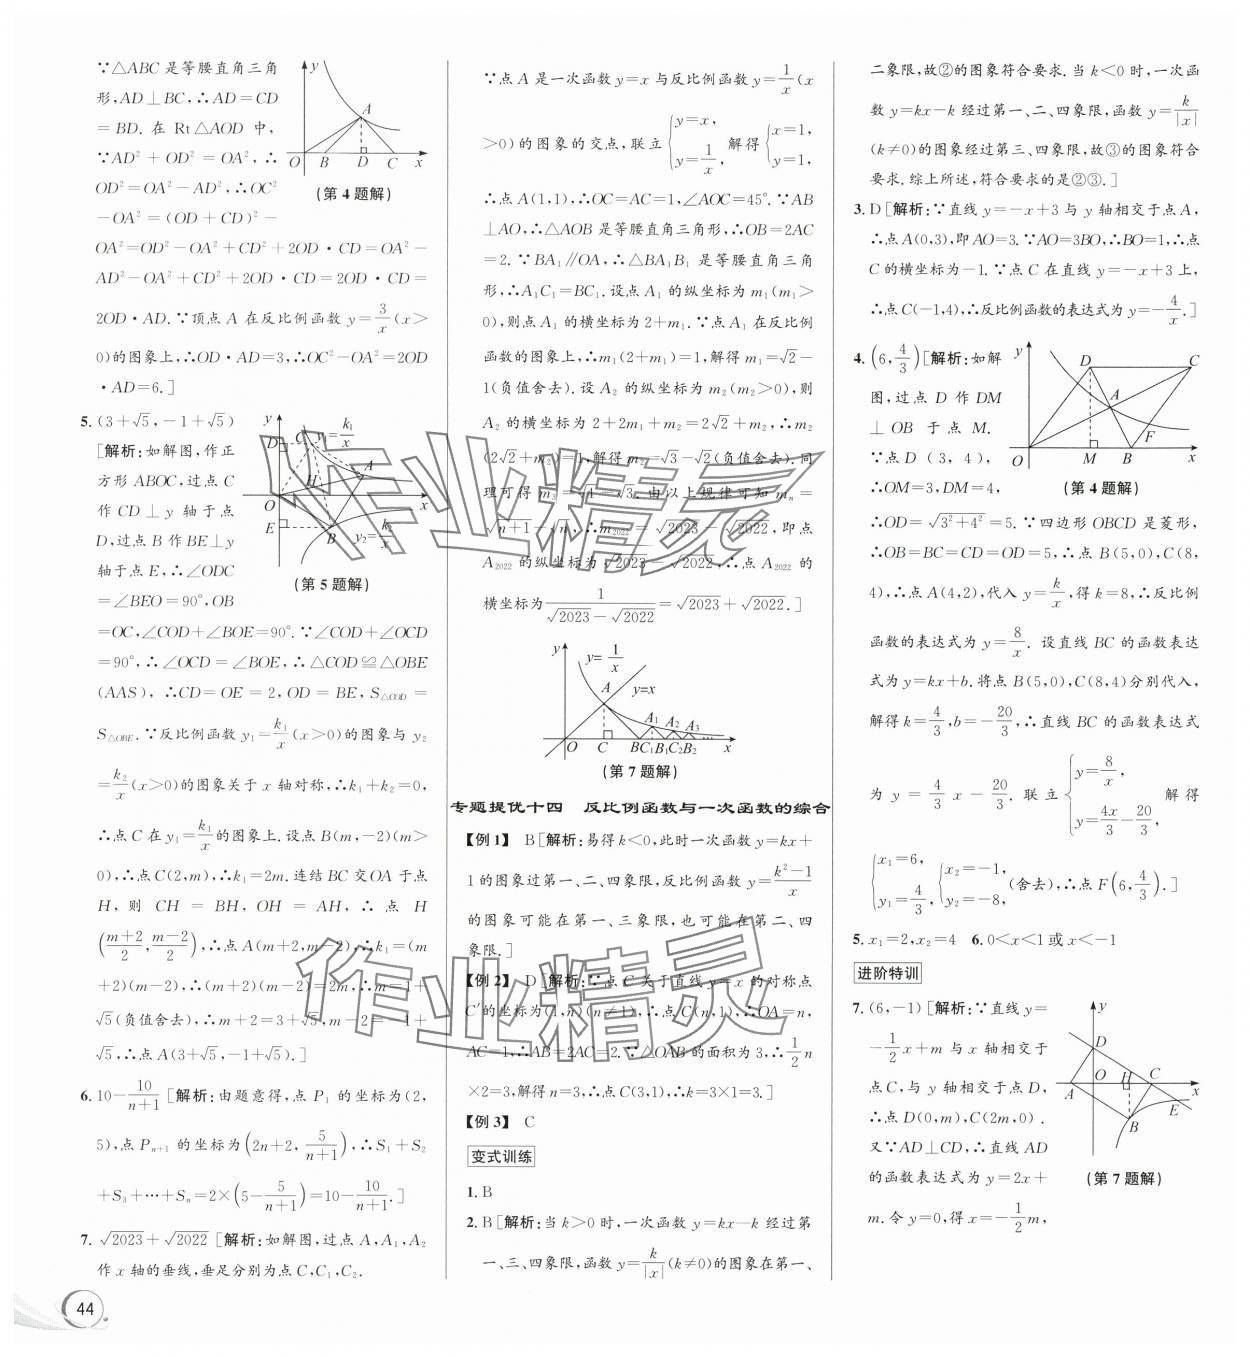 ∵△ABC 是等腰直角三角
形,AD⊥BC,∴AD=CD
=BD. 在 Rt△AOD 中,
∵AD²+OD²=OA²,∴
OD²=OA²-AD²,∴OC²
-OA²=(OD+CD)²-
(第4题解)
OA²=OD²-OA²+CD²+2OD·CD=OA²-
AD²-OA²+CD²+2OD·CD=2OD·CD=
2OD·AD. ∵顶点 A 在反比例函数 y=3/x(x>
0)的图象上,∴OD·AD=3,∴OC²-OA²=2OD
·AD=6.]
5. (3+√5,-1+√5)
[解析:如解图,作正
方形 ABOC,过点 C
作 CD⊥y 轴于点
D,过点 B 作 BE⊥y
轴于点 E,∴∠ODC
=∠BEO=90°,OB
(第5题解)
=OC,∠COD+∠BOE=90°. ∵∠COD+∠OCD
=90°,∴∠OCD=∠BOE,∴△COD≌△OBE
(AAS),∴CD=OE=2,OD=BE,S△COD=
S△OBE. ∵反比例函数 y₁=k₁/x(x>0)的图象与 y₂
=k₂/x(x>0)的图象关于 x 轴对称,∴k₁+k₂=0,
∴点 C 在 y₁=k₁/x的图象上. 设点 B(m,-2)(m>
0),∴点 C(2,m),∴k₁=2m. 连结 BC 交 OA 于点
H,则 CH=BH,OH=AH,∴点 H
((m+2)/2,(m-2)/2),∴点 A(m+2,m-2),∴k₁=(m
+2)(m-2),∴(m+2)(m-2)=2m,∴m=1+
√5(负值舍去),∴m+2=3+√5,m-2=-1+
√5,∴点 A(3+√5,-1+√5).]
6. 10-10/(n+1) [解析:由题意得,点 P₁ 的坐标为(2,
5),点 Pₙ₊₁ 的坐标为(2n+2,5/(n+1)),∴S₁+S₂
+S₃+…+Sₙ=2×(5-5/(n+1))=10-10/(n+1).]
7. √2023+√2022 [解析:如解图,过点 A,A₁,A₂
作 x 轴的垂线,垂足分别为点 C,C₁,C₂.
44
∵点 A 是一次函数 y=x 与反比例函数 y=1/x(x
>0)的图象的交点,联立{y=x, y=1/x, 解得{x=1, y=1,
∴点 A(1,1),∴OC=AC=1,∠AOC=45°. ∵AB
⊥AO,∴△AOB 是等腰直角三角形,∴OB=2AC
=2. ∵BA₁∥OA,∴△BA₁B₁ 是等腰直角三角
形,∴A₁C₁=BC₁. 设点 A₁ 的纵坐标为 m₁(m₁>
0),则点 A₁ 的横坐标为 2+m₁. ∵点 A₁ 在反比例
函数的图象上,∴m₁(2+m₁)=1,解得 m₁=√2-
1(负值舍去). 设 A₂ 的纵坐标为 m₂(m₂>0),则
A₂ 的横坐标为 2+2m₁+m₂=2√2+m₂,∴m₂
(2√2+m₂)=1,解得 m₂=√3-√2(负值舍去). 同
理可得 m₃=√4-√3. 由以上规律可知 mₙ=
√n+1-√n,∴m₂₀₂₂=√2023-√2022,即点
A₂₀₂₂ 的纵坐标为√2023-√2022,∴点 A₂₀₂₂ 的
横坐标为1/(√2023-√2022)=√2023+√2022.]
(第7题解)
专题提优十四 反比例函数与一次函数的综合
【例1】 B [解析:易得 k<0,此时一次函数 y=kx+
1 的图象过第一、二、四象限,反比例函数 y=(k²-1)/x
的图象可能在第一、三象限,也可能在第二、四
象限.]
【例2】 D [解析:∵点 C 关于直线 y=x 的对称点
C′的坐标为(1,n)(n≠1),∴点 C(n,1),∴OA=n,
AC=1,∴AB=2AC=2. ∵△OAB 的面积为 3,∴1/2 n
×2=3,解得 n=3,∴点 C(3,1),∴k=3×1=3.]
【例3】 C
变式训练
1. B
2. B [解析:当 k>0 时,一次函数 y=kx-k 经过第
一、三、四象限,函数 y=k/|x|(k≠0)的图象在第一、
二象限,故②的图象符合要求. 当 k<0 时,一次函
数 y=kx-k 经过第一、二、四象限,函数 y=k/|x|
(k≠0)的图象经过第三、四象限,故③的图象符合
要求. 综上所述,符合要求的是②③.]
3. D [解析:∵直线 y=-x+3 与 y 轴相交于点 A,
∴点 A(0,3),即 AO=3. ∵AO=3BO,∴BO=1,∴点
C 的横坐标为-1. ∵点 C 在直线 y=-x+3 上,
∴点 C(-1,4),∴反比例函数的表达式为 y=-4/x.]
4. (6,4/3) [解析:如解
图,过点 D 作 DM
⊥OB 于点 M.
∵点 D(3,4),
∴OM=3,DM=4,
(第4题解)
∴OD=√3²+4²=5. ∵四边形 OBCD 是菱形,
∴OB=BC=CD=OD=5,∴点 B(5,0),C(8,
4),∴点 A(4,2),代入 y=k/x,得 k=8,∴反比例
函数的表达式为 y=8/x. 设直线 BC 的函数表达
式为 y=kx+b. 将点 B(5,0),C(8,4)分别代入,
解得 k=4/3,b=-20/3,∴直线 BC 的函数表达式
为 y=4/3 x-20/3. 联立{y=8/x, y=4x/3-20/3, 解得
{x₁=6, y₁=4/3, {x₂=-1, y₂=-8,(舍去),∴点 F(6,4/3).]
5. x₁=2,x₂=4 6. 0<x<1 或 x<-1
进阶特训
7. (6,-1) [解析:∵直线 y=
-1/2 x+m 与 x 轴相交于
点 C,与 y 轴相交于点 D,
∴点 D(0,m),C(2m,0).
又∵AD⊥CD,∴直线 AD
的函数表达式为 y=2x+
(第7题解)
m. 令 y=0,得 x=-1/2 m,
作业精灵
作业精灵